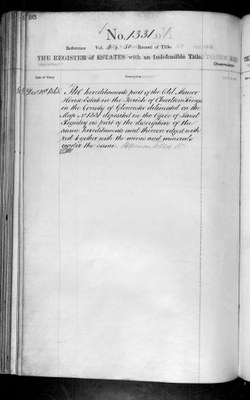 No. 1331
Reference Vol. Record of Title.
THE REGISTER of ESTATES with an Indefeasible Title.
Date of Entry
Description
The hereditaments part of the Old Manor
House Estate in the Parish of Charlton Kings
in the County of Gloucester delineated on the
Map No. 1331 deposited in the Office of Land
Registry as part of the description of the
same hereditaments and thereon edged with
red together with the mines and minerals
under the same.